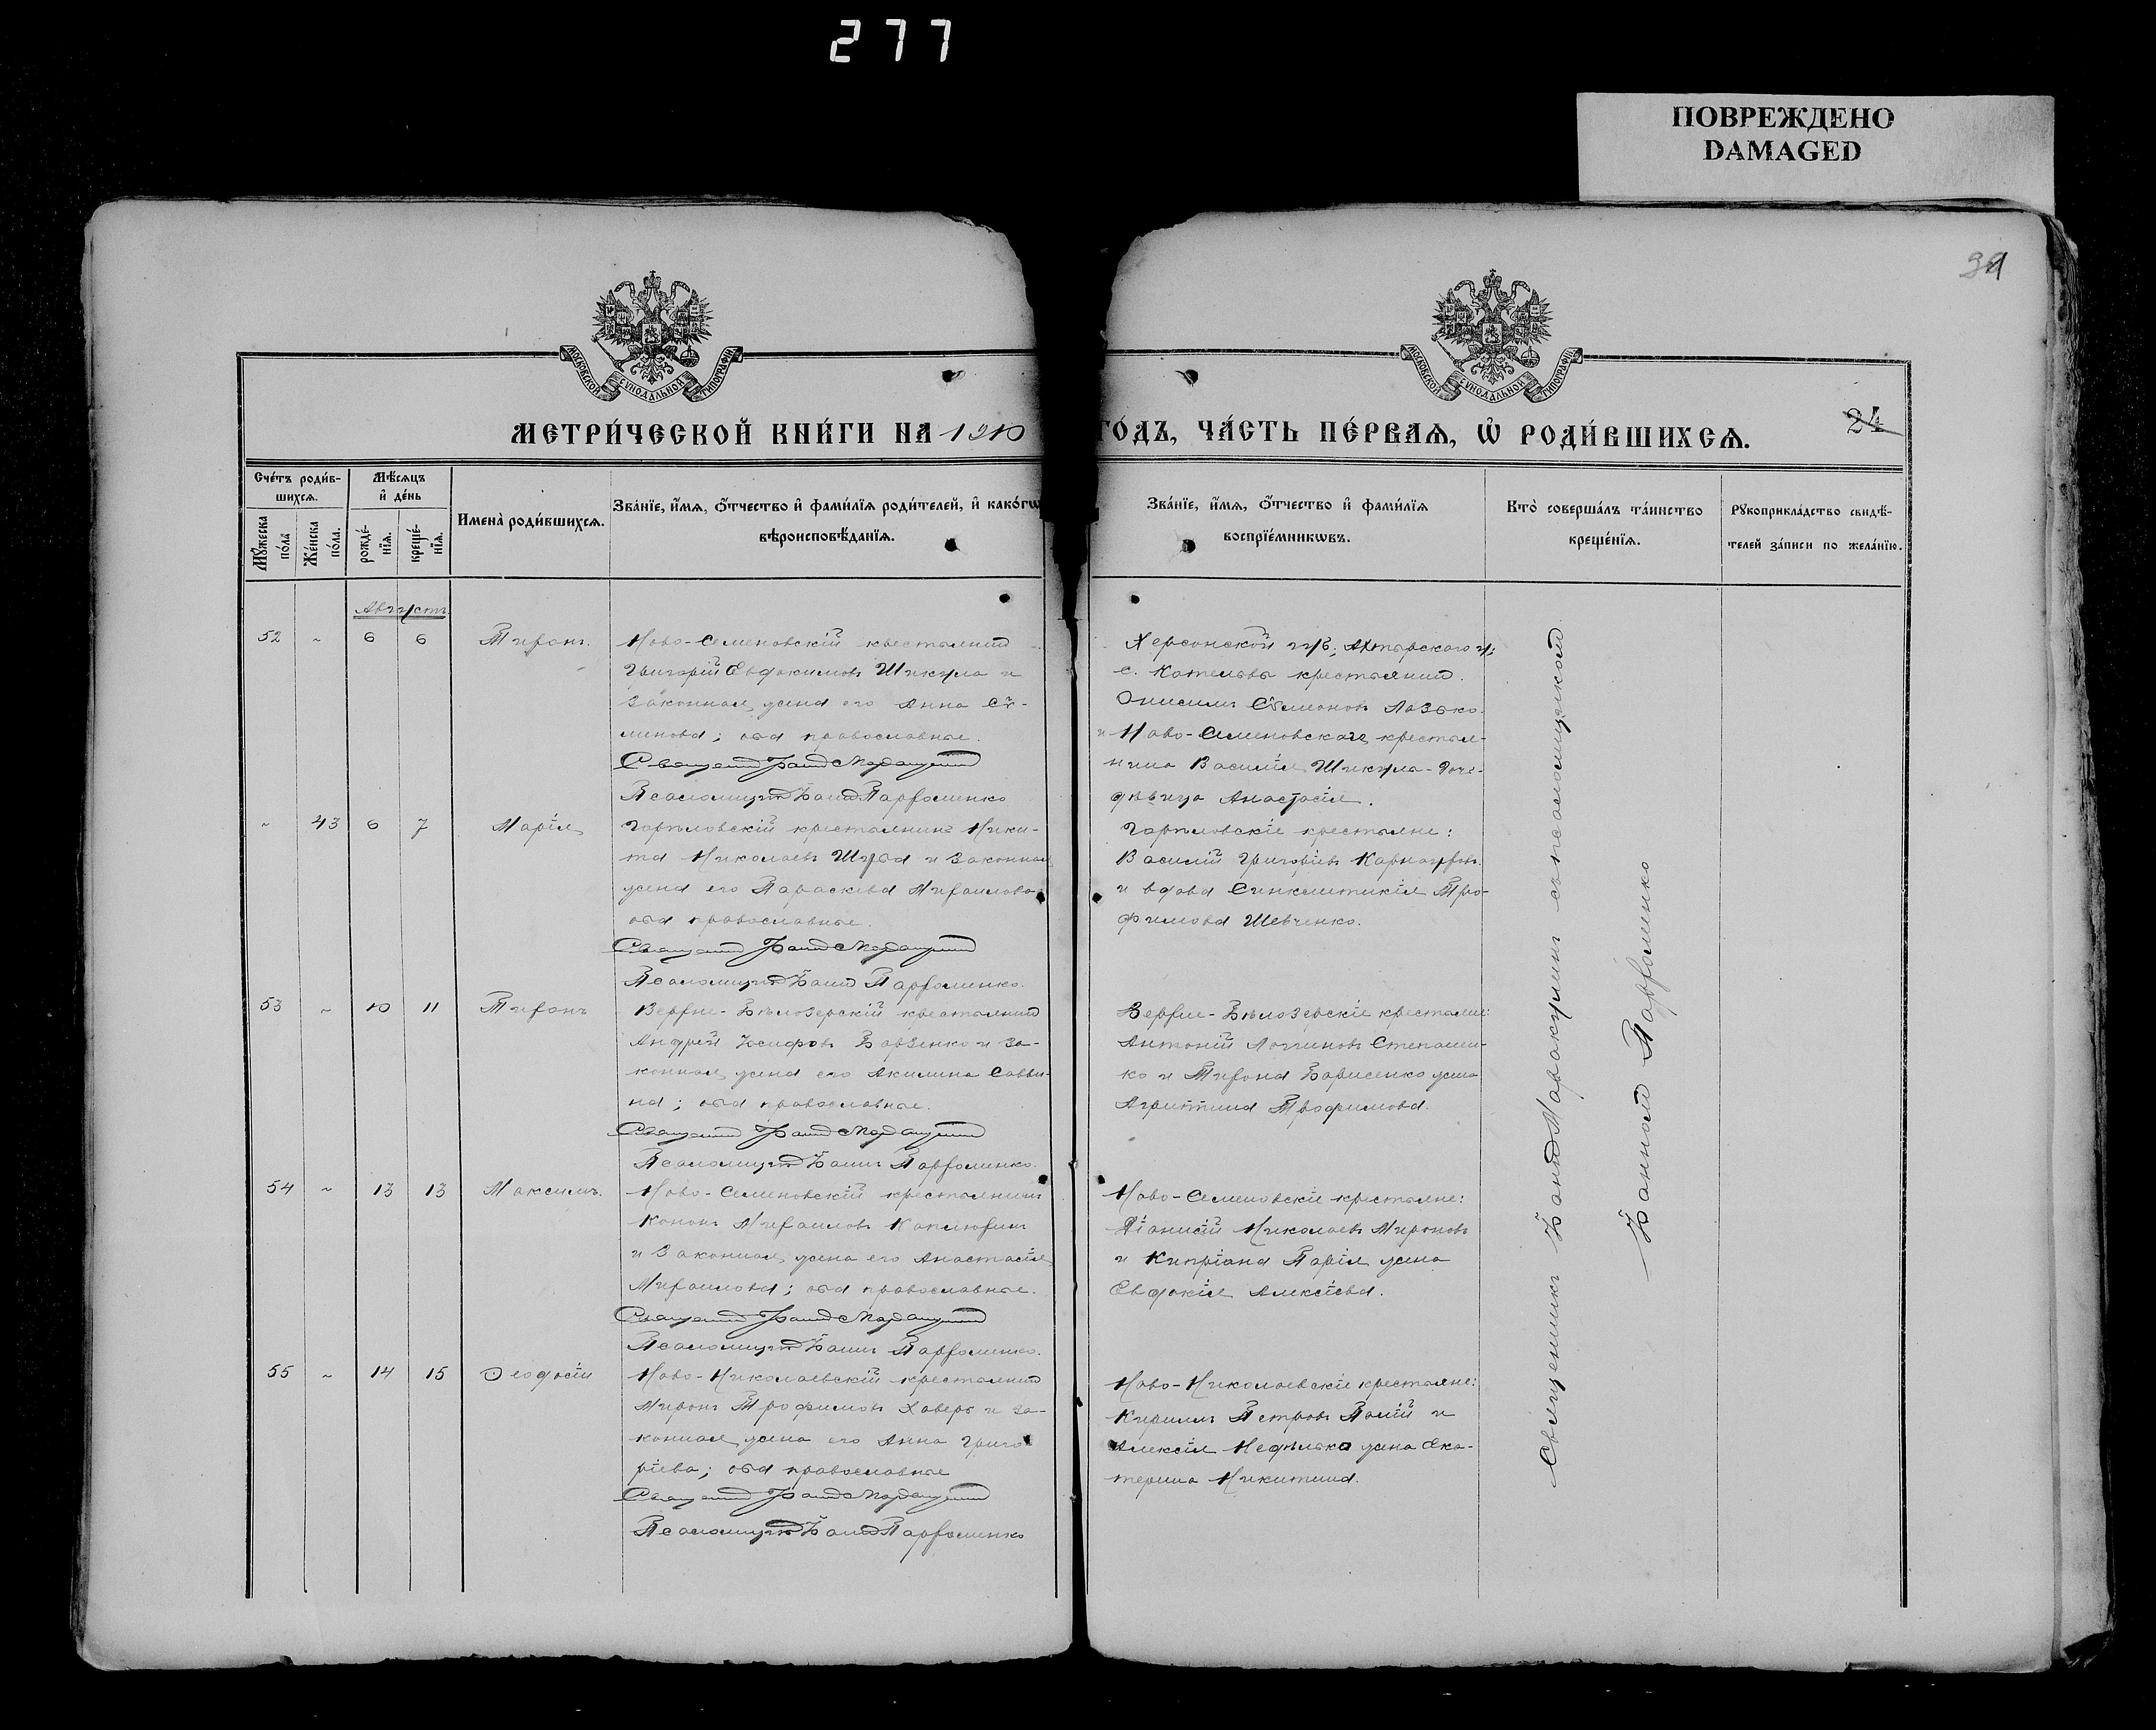 277
ПОВРЕЖДЕНО
DAMAGED
МОСКОВСКОЙ СѴНОДАЛЬНОЙ ТИПОГРАФІИ
МОСКОВСКОЙ СѴНОДАЛЬНОЙ ТИПОГРАФІИ
МЕТРИ́ЧЕСКОЙ КНИ́ГИ НА 1910
ГО́ДЪ, ЧА́СТЬ ПЕ́РВАѦ, Ѡ҆ РОДИ́ВШИХСѦ.
24
Сче́тъ роди́в-
шихсѧ.
Мꙋжеска
по́ла
Же́нска
по́ла.
Мѣ́сѧцъ
и҆ де́нь
рожде́-
нїѧ.
креще́-
нїѧ.
Имена̀ роди́вшихсѧ.
Зва́нїе, и҆́мѧ, ѻ҆́тчество и҆ фами́лїѧ роди́телей, и҆ како́гѡ
вѣроисповѣ́данїѧ.
Зва́нїе, и҆́мѧ, ѻ҆́тчество и҆ фами́лїѧ
воспрїе́мникѡвъ.
Кто̀ соверша́лъ та́инство
креще́нїѧ.
Рꙋкоприкла́дство свидѣ́-
телей за́писи по жела́нїю.
Августъ
52 ~ 6 6 Тихонъ.
Ново-Семеновскій крестьянинъ
Григорій Евдокимовъ Шикула и
законная жена его Анна Се-
менова; оба православные.
Священникъ Іоаннъ
Псаломщикъ Іоаннъ Пархоменко
Херсонской губ.;
с. Котельвы крестьянинъ
Онисимъ Сѷмеоновъ Лазько
и Ново-Семеновскаго крестья-
нина Василія Шикула - дочь
дѣвица Анастасія.
~ 43 6 7 Марія
крестьянинъ Ники-
та Николаевъ Шуба и законная
жена его Параскева Михаилова
оба православные.
Священникъ Іоаннъ
Псаломщикъ Іоаннъ Пархоменко.
крестьяне:
Василій Григоріевъ Карнауховъ
и вдова Синклитикія Тро-
фимова Шевченко.
53 ~ 10 11 Тихонъ
Верхне-Бѣлозерскій крестьянинъ
Андрей Іосифовъ и за-
конная жена его Акилина Савви-
на; оба православные.
Священникъ Іоаннъ
Псаломщикъ Іоаннъ Пархоменко.
Верхне-Бѣлозерскіе крестьяне:
Антоній Логгиновъ Степанен-
ко и Тихона Борисенко жена
Агриппина Трофимова.
54 ~ 13 13 Максимъ.
Ново-Семеновскій крестьянинъ
Кононъ Михаиловъ
и законная жена его Анастасія
Михаилова; оба православные.
Священникъ Іоаннъ
Псаломщикъ Іоаннъ Пархоменко.
Ново-Семеновскіе крестьяне:
Діонисій Николаевъ Мироновъ
и Кипріана Парія жена
Евдокія Алексіева.
55 ~ 14 15 Ѳеодосій
Ново-Николаевскій крестьянинъ
Миронъ Трофимовъ Хаверь и за-
конная жена его Анна Григо
ріева; оба православные
Священникъ Іоаннъ
Псаломщикъ Іоаннъ Пархоменко
Ново-Николаевскіе крестьяне:
Кириллъ Петровъ Палій и
Алексія Недѣлько жена Ека-
терина Никитина.
Священникъ Іоаннъ съ псаломщикомъ
Іоанномъ Пархоменко